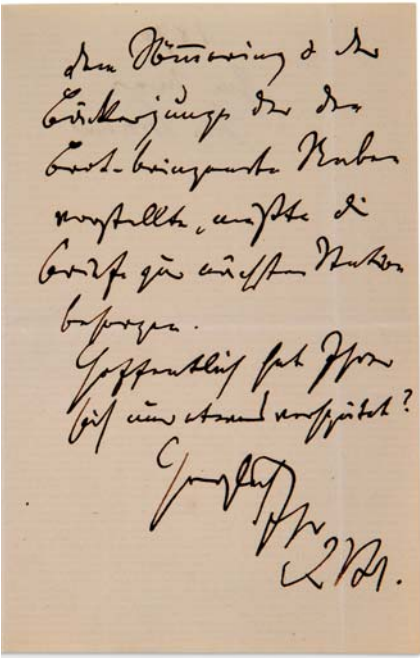 dem Sömmering u der
Bäckerjunge der den
Brot-bringenden Raben
vorstellte, mußte die
Briefe zur nächsten Station
besorgen.
Hoffentlich hat Ihrer
sich nur etwas verspätet?
Herzlichst
Ihr
J. Br.